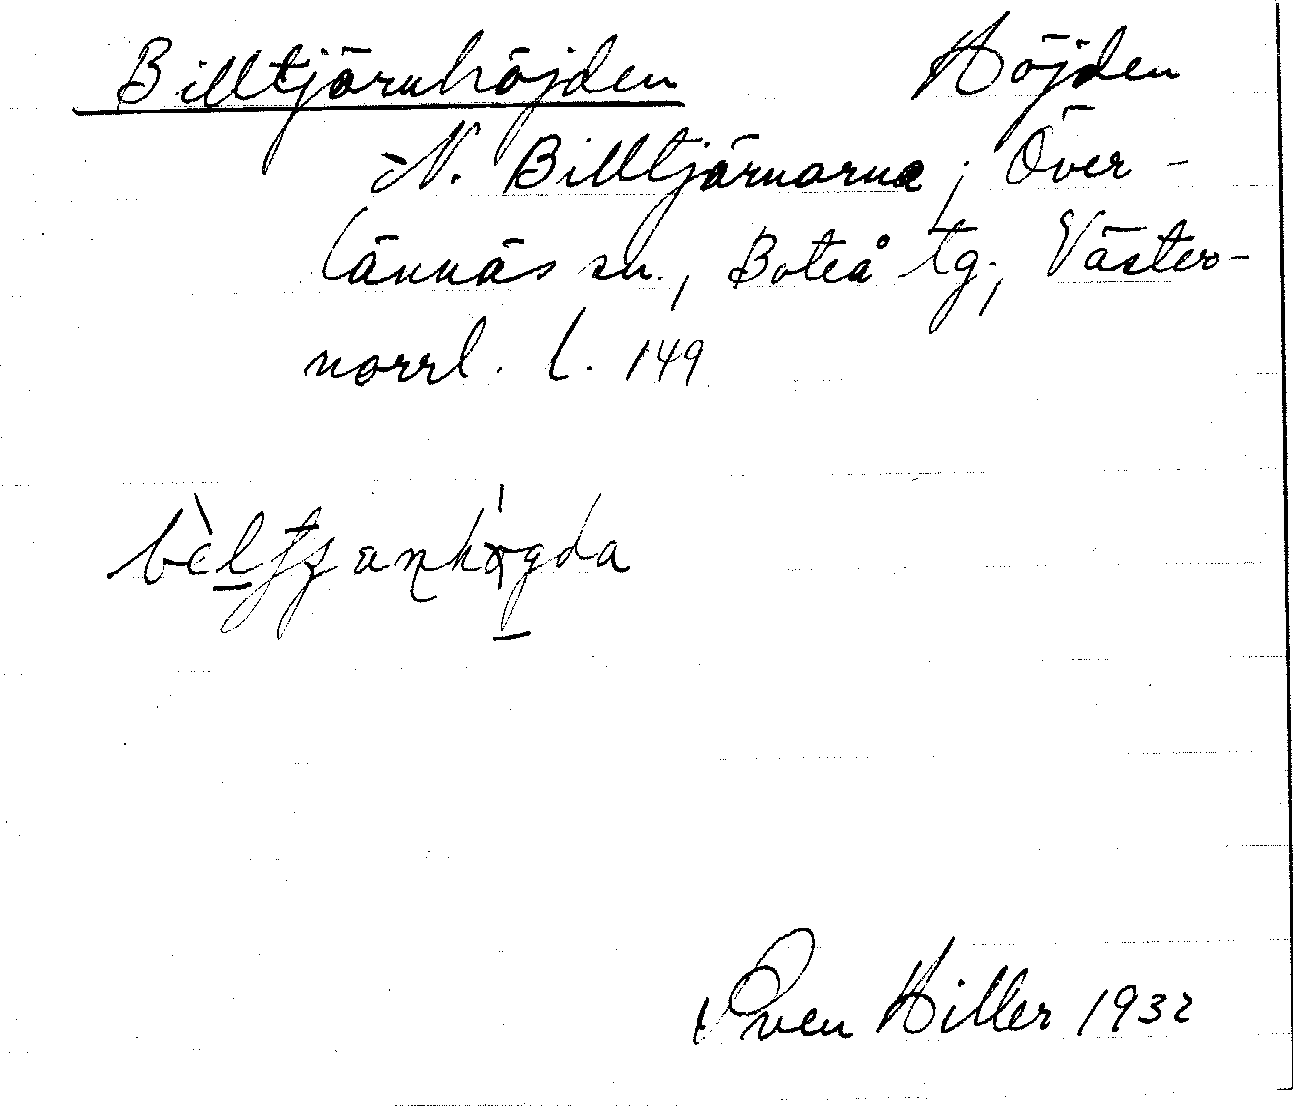 Billtjärnhöjden Höjden
N. Billtjärnarna; Över-
lännäs sn., Boteå tg., Väster-
norrl. l. 149
Sven Hiller 1932